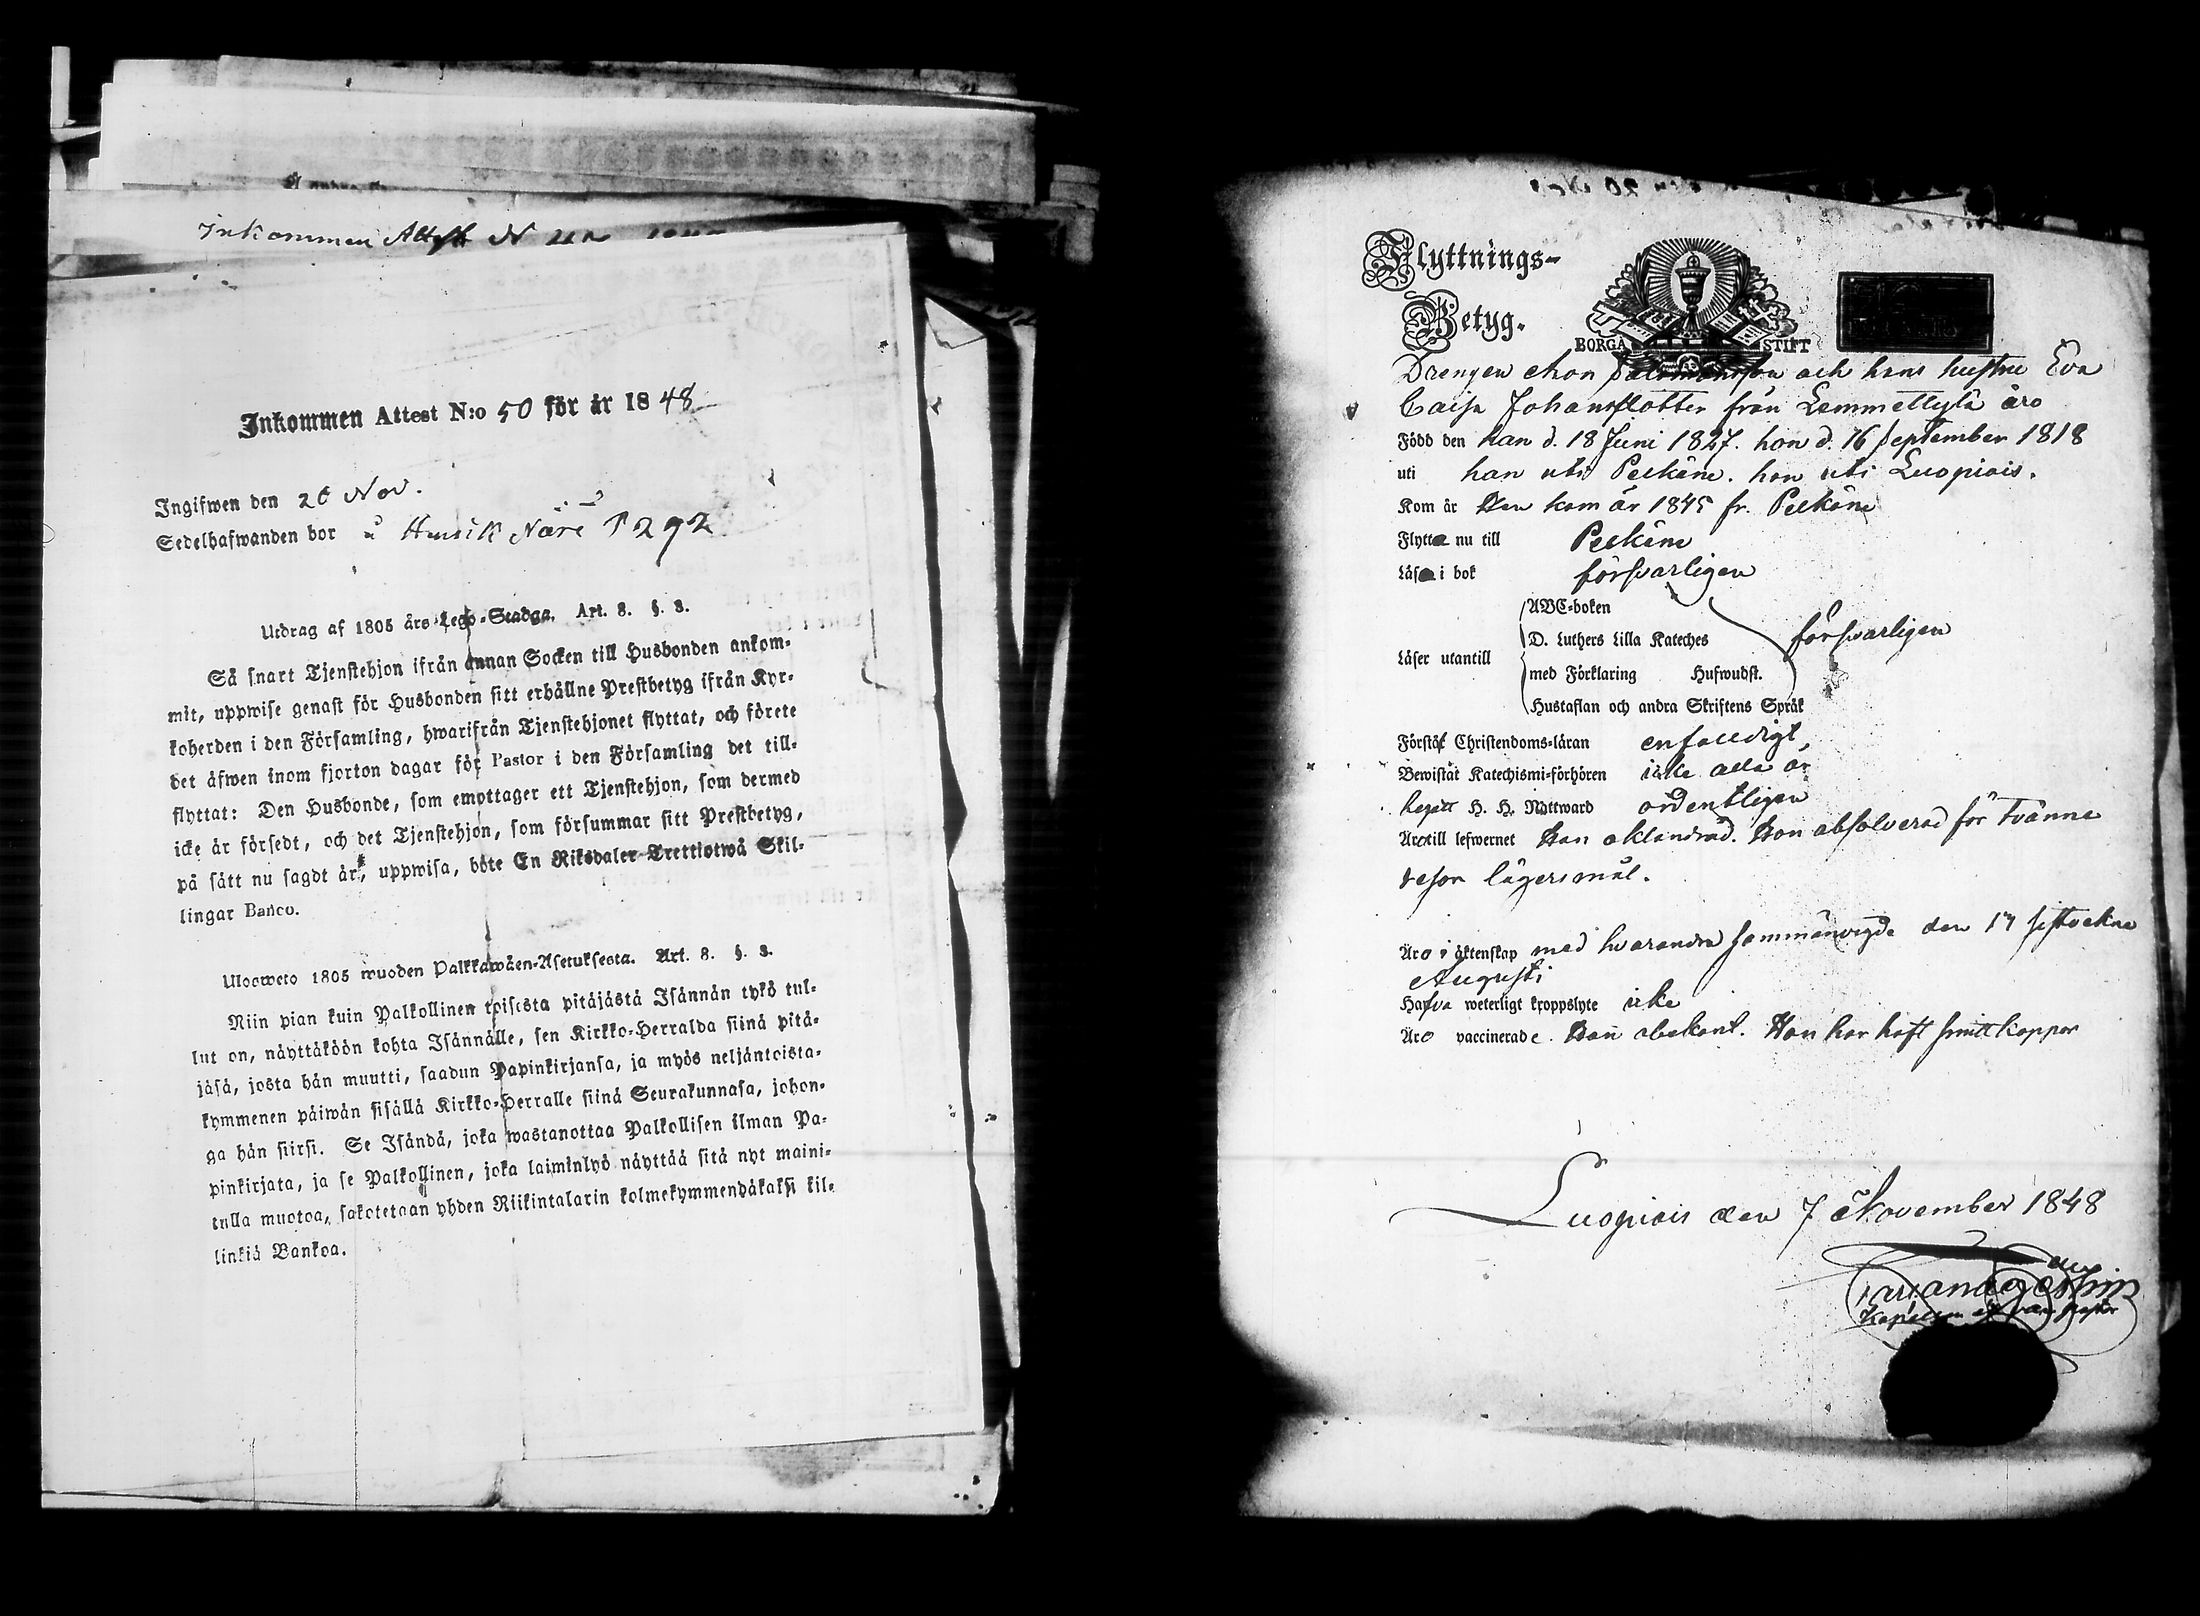 Inkommen Attest N
Inkommen Attest N:o 50 för år 1848
Ingifwen den 20 Nov.
Sedelhafwanden bor å Henrik Näri P 292
Utdrag af 1805 års Lego-Stadga. Art. 8. §. 3.
Så snart Tjenstehjon ifrån annan Socken till Husbonden ankom-
mit, uppwise genast för Husbonden sitt erhållne Prestbetyg ifrån Kyr-
koherden i den Församling, hwarifrån Tjenstehjonet flyttat, och förete
det åfwen inom fjorton dagar för Pastor i den Församling det till-
flyttat: Den Husbonde, som emottager ett Tjenstehjon, som dermed
icke är försedt, och det Tjenstehjon, som försummar sitt Prestbetyg,
på sätt nu sagdt är, uppwisa, böte En Riksdaler Trettiotwå Skil-
lingar Banco.
Ulosweto 1805 wuoden Palkkawäen-Asetuksesta. Art. 8. §. 3.
Niin pian kuin Palkollinen toisesta pitäjästä Isännän tykö tul-
lut on, näyttäköön kohta Isännälle, sen Kirkko-Herralda siinä pitä-
jäsä, josta hän muutti, saadun Papinkirjansa, ja myös neljäntoista-
kymmenen päiwän sisällä Kirkko-Herralle siinä Seurakunnasa, johon-
ga hän siirsi. Se Isändä, joka wastanottaa Palkollisen ilman Pa-
pinkirjata, ja se Palkollinen, joka laiminlyö näyttää sitä nyt maini-
tulla muotoa, sakotetaan yhden Riikintalarin kolmekymmendäkaksi kil-
linkiä Bankoa.
Flyttnings-
Betyg.
BORGÅ STIFT
Drengen Mon Salomonsson och hans hustru Eva
Caisa Johansdotter från Lemmettylä äro
Född den han d. 18 Juni 1827. hon d. 16 September 1818
uti han uti Pelkäne. hon uti Luopiois.
Kom år Han kom år 1845 fr. Pelkäne
Flytta nu till Pelkäne
Läsa i bok försvarligen
ABC-boken
D. Luthers Lilla Kateches försvarligen
Läser utantill
med Förklaring Hufwudst.
Hustaflan och andra Skriftens Språk
Förstår Christendoms-läran enfaldigt,
Bewistat Katechismi-förhören icke alla år
Begått H. H. Nattward ordentligen
Äro till lefwernet Han oklandrad. Hon absolverad för tvänne
resor lägersmål.
Äro i äktenskap med hvarandra sammanvigde den 17 sistvekne
Augusti
Hafva weterligt kroppslyte icke
Äro vaccinerade. Han obekant. Hon har haft smittkoppor
Luopiois den 7 November 1848